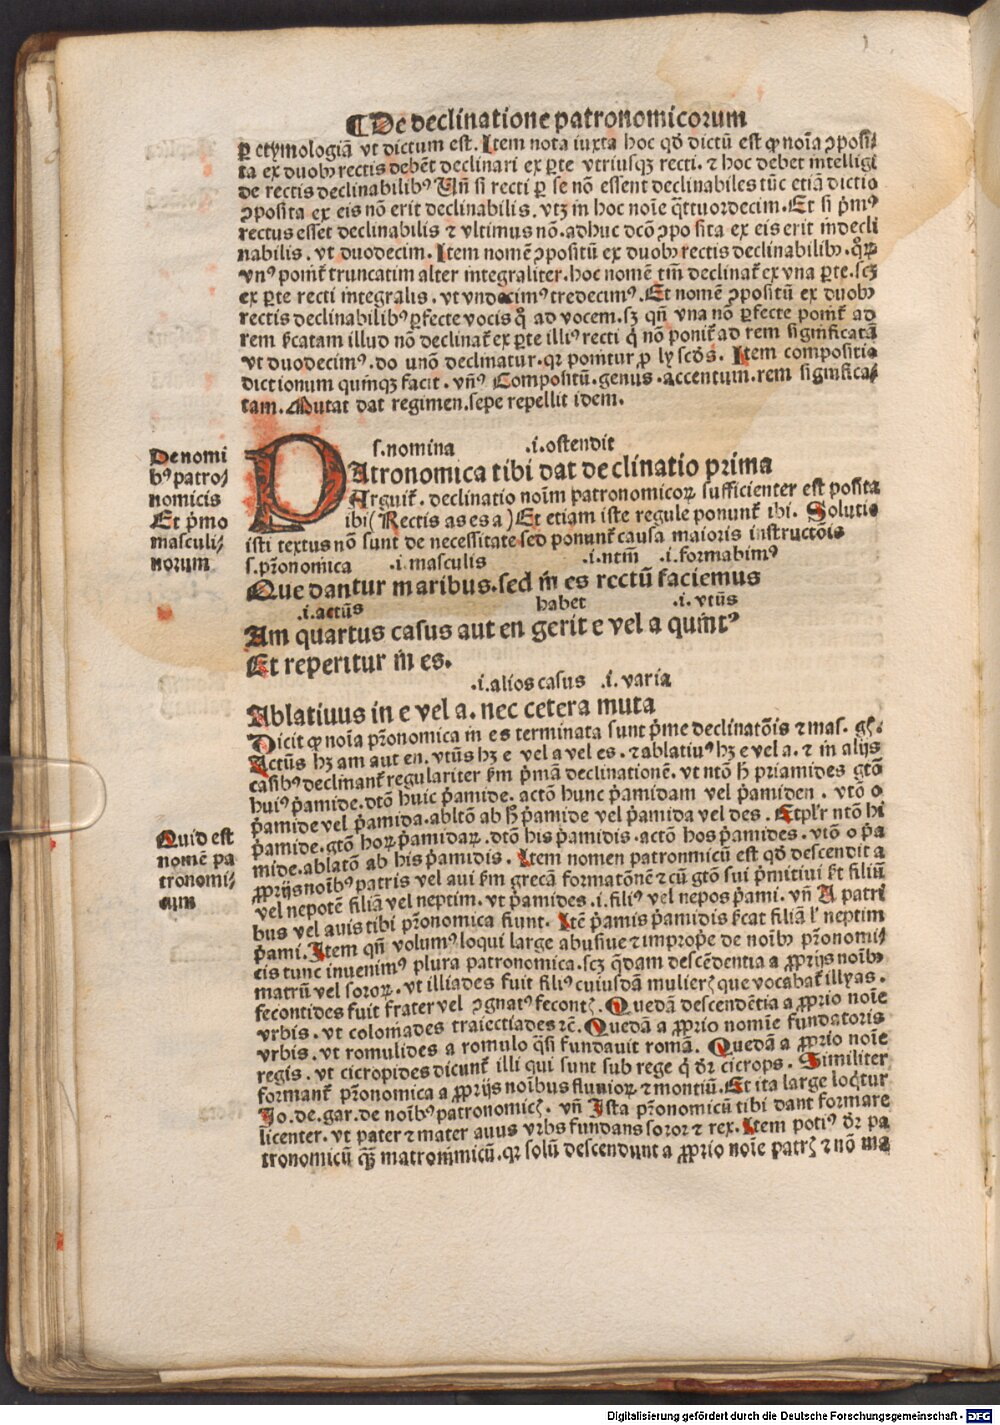 ¶ De declinatione patronomicorum
ꝑ etymologiã vt dictum est. Item nota iuxta hoc qd̛ dictũ est ꝙ noĩa ↄposi-
ta ex duobꝰ rectis debẽt declinari ex ꝑte vtriusqꝫ recti. ⁊ hoc debet intelligi
de rectis declinabilibꝰ Vñ si recti ꝑ se nõ essent declinabiles tũc etiã dictio
ↄposita ex eis nõ erit declinabilis. vtꝫ in hoc noĩe q̃ttuordecim. Et si p̃mꝰ
rectus esset declinabilis ⁊ vltimus nõ. adhuc dcõ ↄpo sita ex eis erit indecli
nabilis. vt duodecim. Item nomẽ ↄpositũ ex duobꝰ rectis declinabilibꝰ. qꝝ
vnꝰ ponit̃ truncatim alter integraliter. hoc nomẽ tm̃ declinat̃ ex vna ꝑte. scꝫ
ex ꝑte recti integralis. vt vndecimꝰ tredecimꝰ. Et nomẽ ↄpositũ ex duobꝰ
rectis declinabilibꝰ ꝑfecte vocis q̊ ad vocem. sꝫ qñ vna nõ ꝑfecte ponit̃ ad
rem ſ̃catam illud nõ declinat̃ ex ꝑte illiꝰ recti q̊ nõ ponit̃ ad rem significatã
vt duodecimꝰ. do unõ declinatur. qꝛ ponitur ꝓ ly scd̃s. Item compositio
dictionum quinqꝫ facit. vñꝰ Compositũ. genus. accentum. rem significa-
tam. Mutat dat regimen. sepe repellit idem.
De nomi
bꝰ patro-
nomicis
Et p̃mo
masculi-
norum
s. nomina .i. ostendit
PAtronomica tibi dat declinatio prima
Arguit̃. declinatio noĩm patronomicoꝝ sufficienter est posita
ibi (Rectis as es a) Et etiam iste regule ponunt̃ ibi. Solutio
isti textus nõ sunt de necessitate sed ponunt̃ causa maioris instructõis
s. pr̃onomica .i masculis .i. ntm̃ .i. formabimꝰ
Que dantur maribus. sed in es rectũ faciemus
.i. actũs habet .i. vtũs
Am quartus casus aut en gerit e vel a quintꝰ
Et reperitur in es.
.i. alios casus .i. varia
Ablatiuus in e vel a. nec cetera muta
Dicit ꝙ noĩa pr̃onomica in es terminata sunt p̃me declinatõis ⁊ mas. gñ̃.
Actũs hꝫ am aut en. vtũs hꝫ e vel a vel es. ⁊ ablatiuꝰ hꝫ e vel a. ⁊ in alijs
casibꝰ declinant̃ regulariter ẜm p̃mã declinationẽ. vt ntõ h̃ priamides gtõ
huiꝰ p̃amide. dtõ huic p̃amide. actõ hunc p̃amidam vel p̃amiden. vtõ o
p̃amide vel p̃amida. abltõ ab h̃ p̃amide vel p̃amida vel des. Et plr̃ ntõ hi
p̃amide. gtõ hoꝝ p̃amidaꝝ. dtõ his p̃amidis. actõ hos p̃amides. vtõ o p̃a
mide. ablatõ ab his p̃amidis. Item nomen patronmicũ est qd̛ descendit a
Quid est
nomẽ pa
tronomi-
cum
ꝓprijs noĩbꝰ patris vel aui ẜm grecã formatõnẽ ⁊ cũ gtõ sui p̃mitiui ſ̃t filiũ
vel nepotẽ filiã vel neptim. vt p̃amides. i. filiꝰ vel nepos p̃ami. vñ A patri
bus vel auis tibi pr̃onomica fiunt. Itẽ p̃amis p̃amidis ſ̃cat filiã l̛ neptim
p̃ami. Item qñ volumꝰ loqui large abusiue ⁊ improp̃e de noĩbꝰ pr̃onomi-
cis tunc inuenimꝰ plura patronomica. scꝫ q̃dam descẽdentia a ꝓprijs noĩbꝰ
matrũ vel soroꝝ. vt illiades fuit filiꝰ cuiusdã mulieꝝ que vocabat̃ illyas.
fecontides fuit frater vel ↄgnatꝰ feconꝭ. Quedã descendẽtia a ꝓprio noĩe
vrbis. vt colomades traiectiades rc̃. Quedã a ꝓprio nomĩe fundatoris
vrbis. vt romulides a romulo q̃si fundauit romã. Quedã a ꝓprio noĩe
regis. vt cicropides dicunt̃ illi qui sunt sub rege q̊ dr̃ cicrops. Similiter
formant̃ pr̃onomica a ꝓprijs noĩbus fluuioꝝ ⁊ montiũ. Et ita large loq̃tur
Jo. de. gar. de noĩbꝰ patronomicꝭ. vñ Ista pr̃onomicũ tibi dant formare
licenter. vt pater ⁊ mater auus vrbs fundans soror ⁊ rex. Item potiꝰ dr̃ pa
tronomicũ q̃ꝫ matronimicũ. qꝛ solũ descendunt a ꝓprio noĩe patrꝭ ⁊ nõ ma
Digitalisierung gefördert durch die Deutsche Forschungsgemeinschaft - DFG